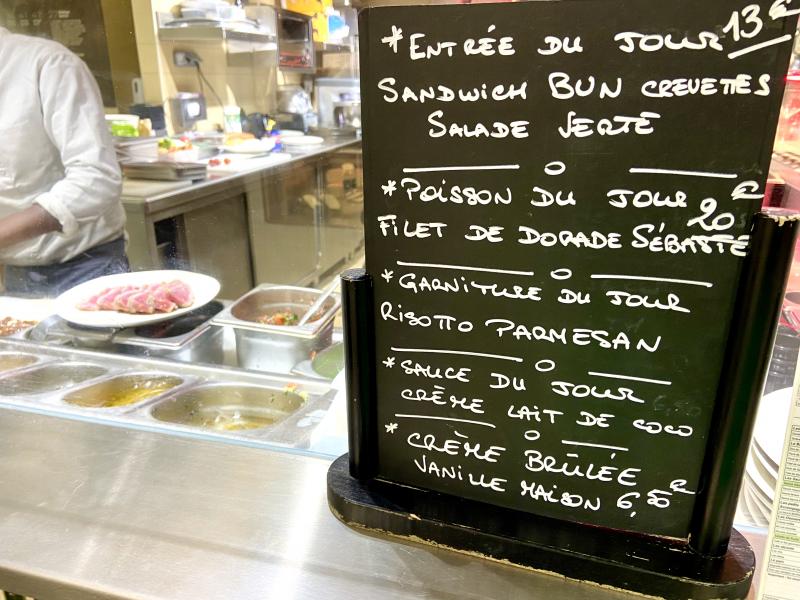 *ENTRÉE DU JOUR 13€
SANDWICH BUN CREVETTES
SALADE VERTE
*POISSON DU JOUR €
20
FILET DE DORADE SÉBASTE
*GARNITURE DU JOUR
RISOTTO PARMESAN
*SAUCE DU JOUR
CRÈME LAIT DE COCO
*CRÈME BRÛLÉE €
VANILLE MAISON 6,50